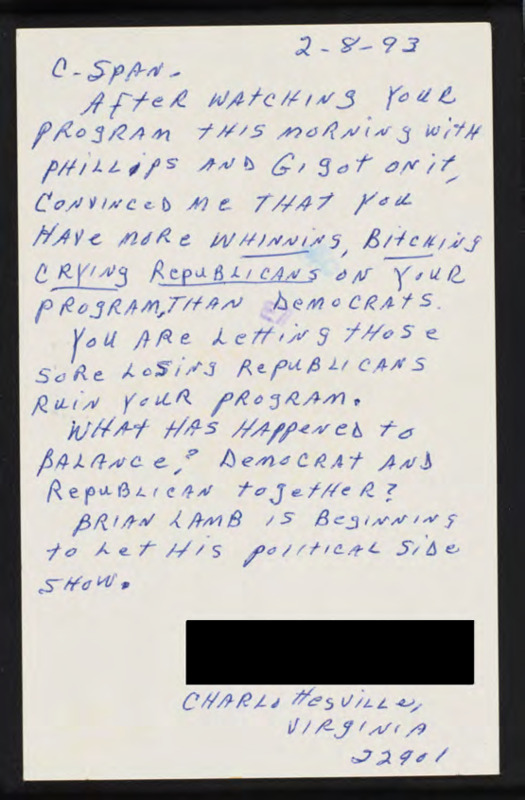 2-8-93
C-SPAN.
AFTER WATCHING YOUR
PROGRAM THIS MORNING WITH
PHILLIPS AND GIGOT ON IT,
CONVINCED ME THAT YOU
HAVE MORE WHINNING, BITCHING
CRYING REPUBLICANS ON YOUR
PROGRAM, THAN DEMOCRATS.
YOU ARE LETTING THOSE
SORE LOSING REPUBLICANS
RUIN YOUR PROGRAM.
WHAT HAS HAPPENED TO
BALANCE,? DEMOCRAT AND
REPUBLICAN TOGETHER?
BRIAN LAMB IS BEGINNING
TO LET HIS POLITICAL SIDE
SHOW.
CHARLOTTESVILLE,
VIRGINIA
22901